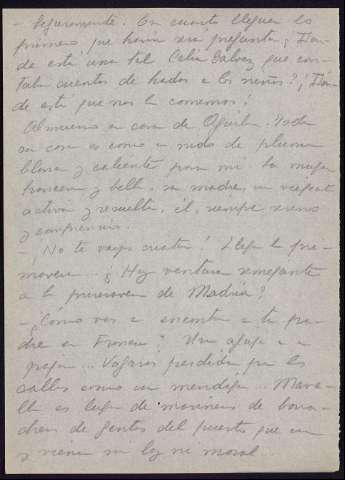 - Seguramente. En cuanto lleguen lo
primero que harán será preguntar ¿Dón-
de está una tal Celia Gálvez que con-
taba cuentos de hadas a los niños? ¡Dón-
de está que nos la comemos!
Almuerzo en casa de Aguilar. Toda
su casa es como un nido de plumas
blanco y caliente para mi. La mujer
francesa y bella, su madre,
activa y resuelta, él, siempre sereno
y comprensivo.
- ¡No te vayas criatura! Llega la pri-
mavera... ¿Hay ventura semejante
a la primavera de Madrid?
- ¿Cómo vas a encontrar a tu pa-
dre en Francia? Una aguja en un
pajar... Vagarás perdida por las
calles como un mendigo... Marse-
lla es lugar de marineros de
de gentes del puerto que
ni ley ni moral